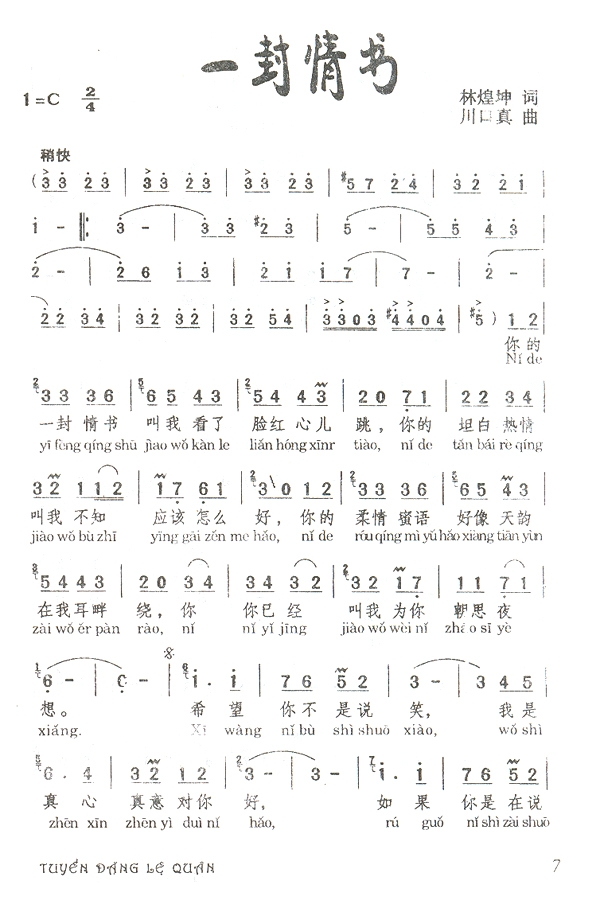 一封情书
1=C 2/4
林煌坤 词
川口真 曲
稍快
(3 3 2 3 | 3 3 2 3 | 3 3 2 3 | #5 7 2 4 | 3 2 2 1 |
1 - ‖: 3 - | 3 3 #2 3 | 5 - | 5 5 4 3 |
2 - | 2 6 1 3 | 2 1 1 7 | 7 - | 2 -
2 2 3 4 | 3 2 3 2 | 3 2 5 4 | 3 3 0 3 #4 4 0 4 | #5 ) 1 2
你的
Nǐ de
3 3 3 6 | 6 5 4 3 | 5 4 4 3 | 2 0 7 1 | 2 2 3 4
一封 情书 叫我 看了 脸红 心儿 跳, 你的 坦白 热情
yī fēng qíng shū jiào wǒ kàn le liǎn hóng xīnr tiào, nǐ de tǎn bái rè qíng
3 2 1 1 2 | 1 7 6 1 | 3 0 1 2 | 3 3 3 6 | 6 5 4 3
叫我 不知 应该 怎么 好, 你的 柔情 蜜语 好像 天韵
jiào wǒ bù zhī yīng gāi zěn me hǎo, nǐ de róu qíng mì yǔ hǎo xiàng tiān yùn
5 4 4 3 | 2 0 3 4 | 3 4 3 4 | 3 2 1 7 | 1 1 7 1
在我 耳畔 绕, 你 你已经 叫我 为你 朝思夜
zài wǒ ěr pàn rào, nǐ nǐ yǐ jīng jiào wǒ wèi nǐ zhāo sī yè
6 - | 6 - | 1 . 1 | 7 6 5 2 | 3 - | 3 4 5
想。 希望 你不 是说 笑, 我是
xiǎng. Xī wàng nǐ bù shì shuō xiào, wǒ shì
6 . 4 | 3 2 1 2 | 3 - | 3 - | 1 . 1 | 7 6 5 2
真心 真意 对你 好, 如果 你是 在说
zhēn xīn zhēn yì duì nǐ hǎo, rú guǒ nǐ shì zài shuō
TUYỂN ĐẶNG LỆ QUÂN 7